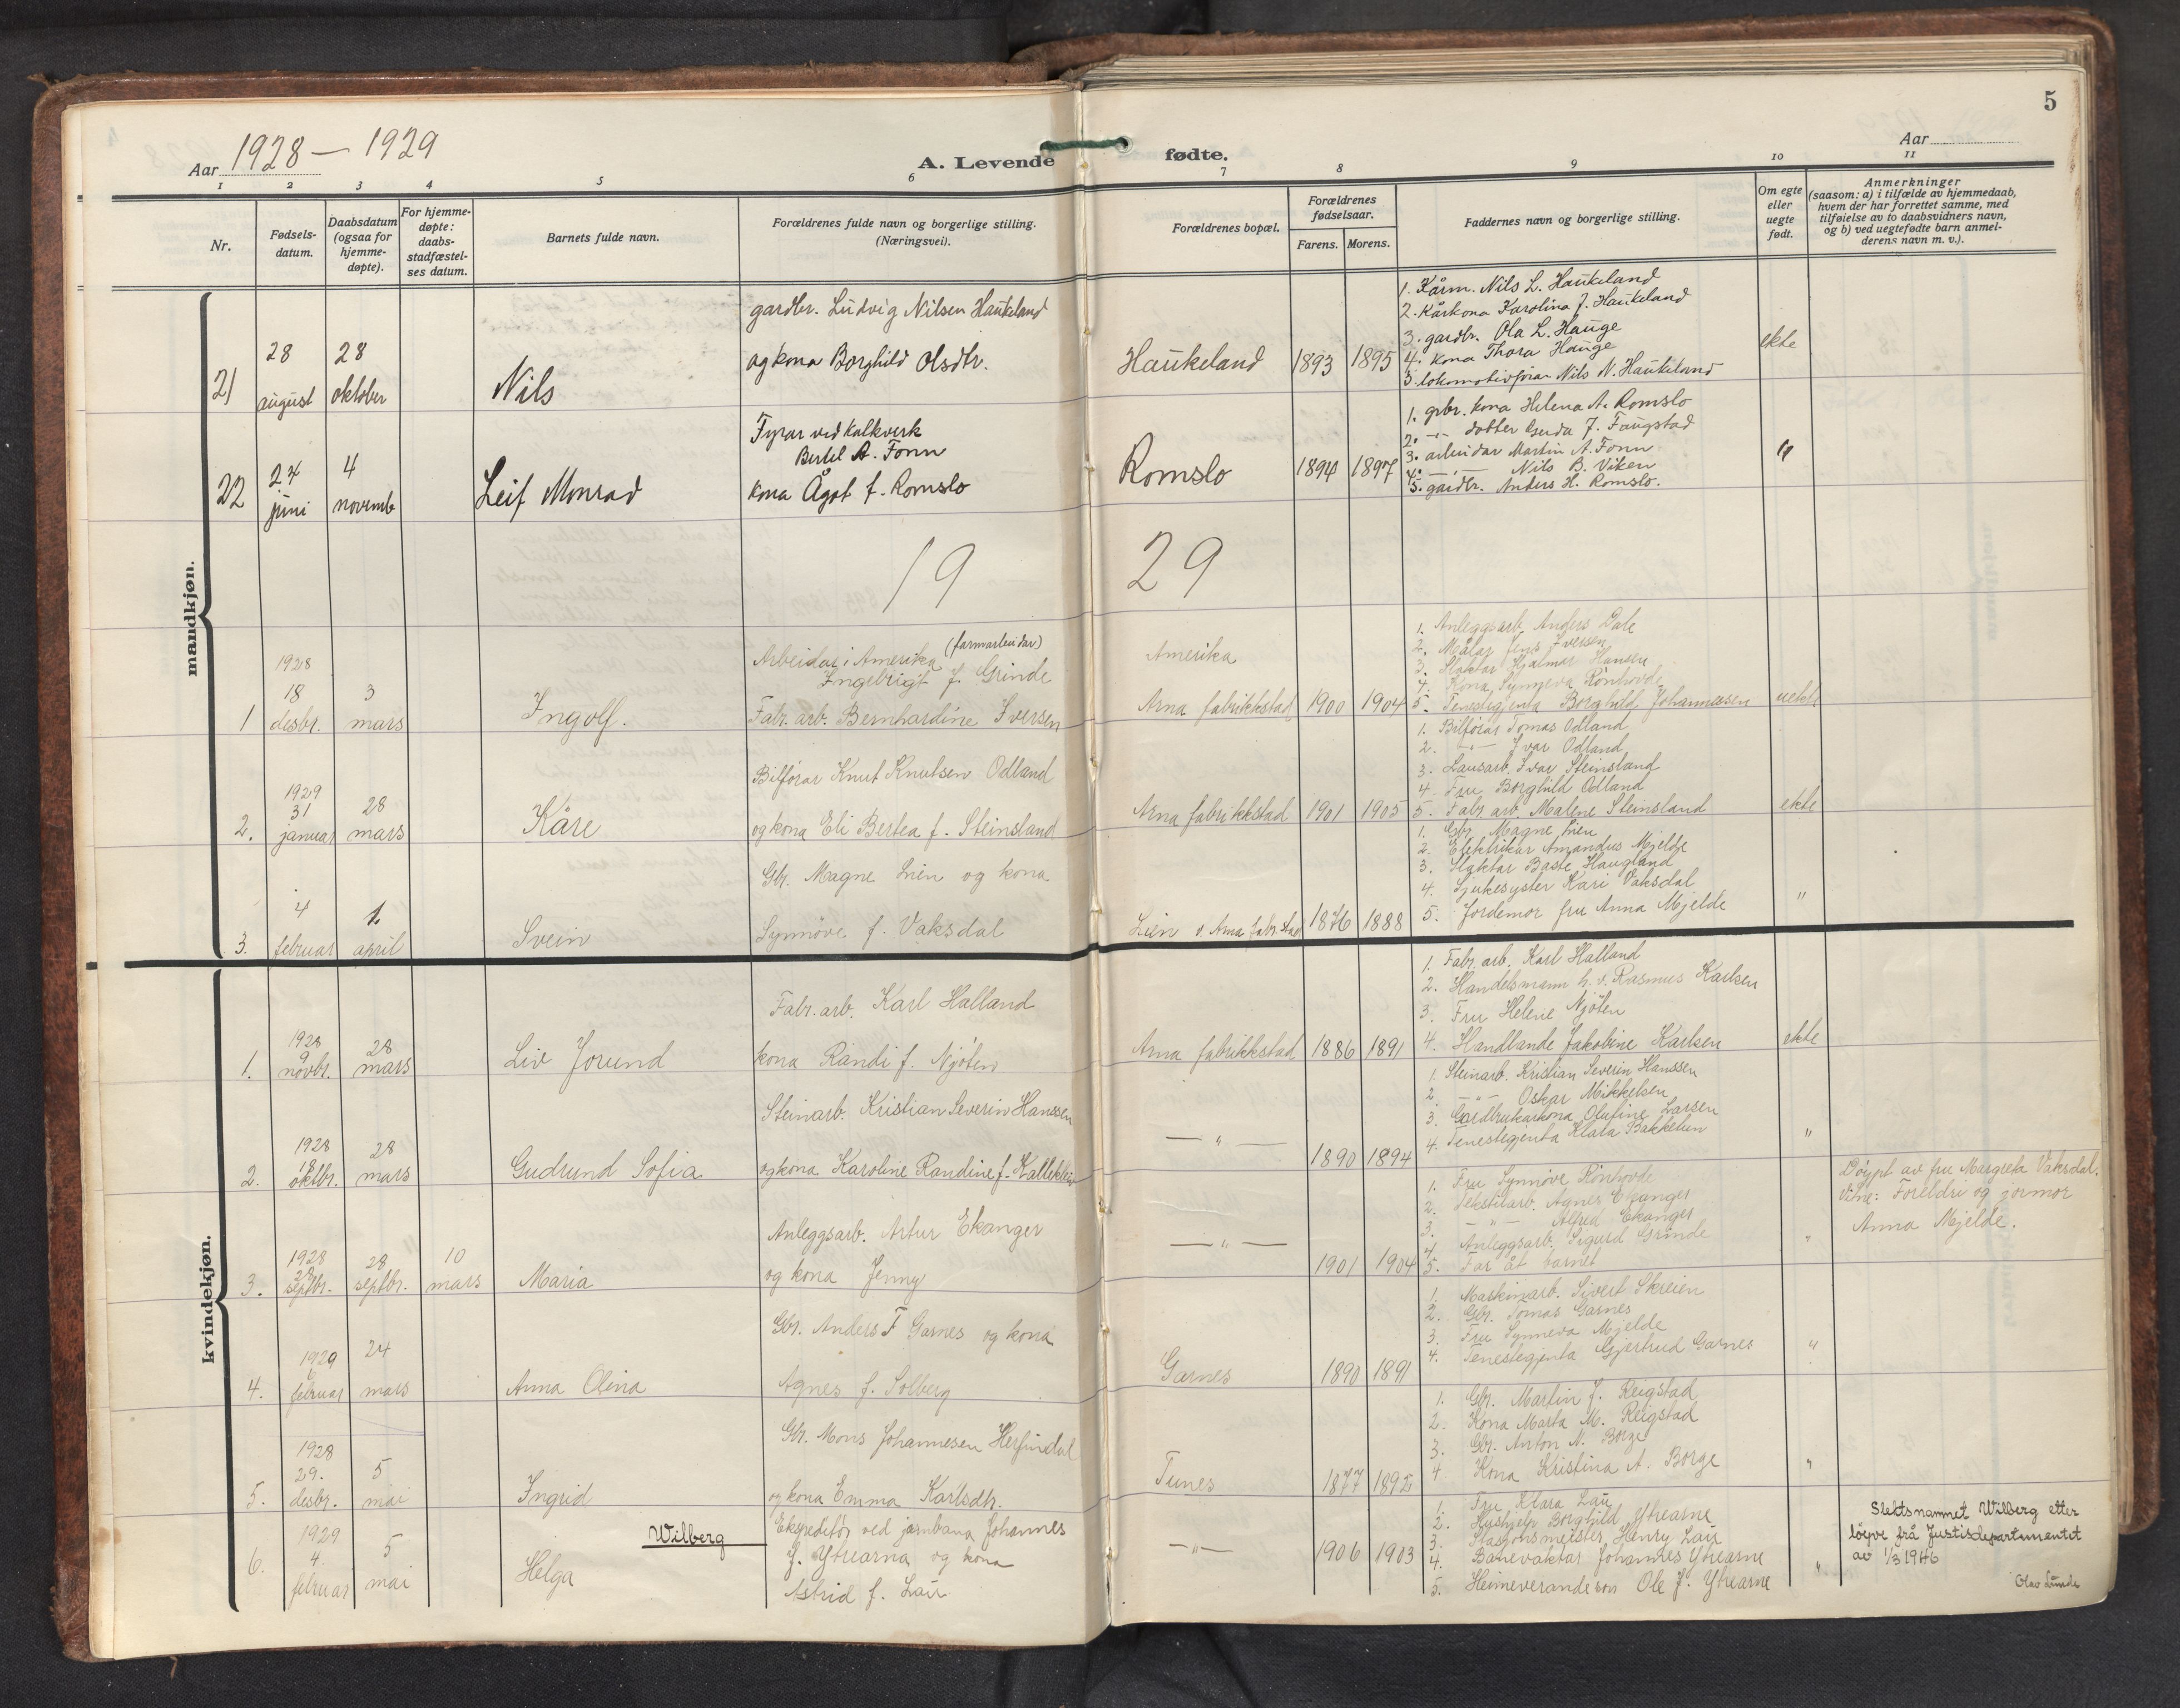 5
Aar 1928 — 1929
A. Levende fødte.
Aar
1 2 3 4 5 6 7 8 9 10 11
Nr.
Fødsels-
datum.
Daabsdatum
(ogsaa for
hjemme-
døpte).
For hjemme-
døpte:
daabs-
stadfæstel-
ses datum.
Barnets fulde navn.
Forældrenes fulde navn og borgerlige stilling.
(Næringsvei).
Forældrenes bopæl.
Forældrenes
fødselsaar.
Farens. Morens.
Faddernes navn og borgerlige stilling.
Om egte
eller
uegte
født.
Anmerkninger
(saasom: a) i tilfælde av hjemmedaab,
hvem der har forrettet samme, med
tilføielse av to daabsvidners navn,
og b) ved uegtefødte barn anmel-
derens navn m. v.).
mandkjøn.
21
28
august
28
oktober
Nils
gardbr. Ludvig Nilsen Haukeland
og kona Borghild Olsdtr.
Haukeland
1893 1895
1. Kårm. Nils L. Haukeland
2. Kårkona Karolina J. Haukeland
3. gardbr. Ola L. Hauge
4. kona Thora Hauge
5. lokomotivførar Nils N. Haukeland
ekte
22
24
juni
4
novemb
Leif Monrad
Fyrar ved Kalkverk
Bertel A. Fonn
kona Ågot f. Romslo
Romslo
1894 1897
1. grbr. kona Helena A. Romslo
2. –"– dotter Gerda J. Faugstad
3. arbeidar Martin A. Fonn
4. –"– Nils B. Viken
5. gardbr. Anders H. Romslo.
"
19 29
1
1928
18
desbr.
3
mars
Ingolf.
Arbeidar i Amerika (farmarbeidar)
Ingebrigt J. Grinde
Fabr. arb. Bernhardine Iversen
Amerika
Arna fabrikkstad
1900 1904
1. Anleggsarb. Anders Dale
2. Målar Jens Iversen
3. Slaktar Hjalmar Hansen
4. Kona Synneva Rönhovde
5. Tenestgjenta Borghild Johannesen
uekte
2.
1929
31
januar
28
mars
Kåre
Bilförar Knut Knutsen Odland
og kona Eli Bertea f. Steinsland
Arna fabrikkstad
1901 1905
1. Bilförar Tomas Odland
2. –"– Ivar Odland
3. Lausarb. Ivar Steinsland
4. Fru Borghild Odland
5. Fabr. arb. Malene Steinsland
ekte
3.
4
februar
1.
april
Svein
Gbr. Magne Lien og kona
Synnöve f. Vaksdal
Lien v. Arna fabr. stad
1876 1888
1. Gbr. Magne Lien
2. Elektrikar Amandus Mjelde
3. Slaktar Baste Haugland
4. Sjukesyster Kari Vaksdal
5. Jordemor fru Anna Mjelde
"
kvindekjøn.
1.
1928
9
novbr.
28
mars
Liv Jorund
Fabr. arb. Karl Halland
kona Randi f. Njöten
Arna fabrikkstad
1886 1891
1. Fabr. arb. Karl Halland
2. Handelsmann h. v. Rasmus Karlsen
3. Fru Helene Njöten
4. Handlande Jakobine Karlsen
ekte
2.
1928
18
oktbr.
28
mars
Gudrund Sofia
Steinarb. Kristian Severin Hanssen
og kona Karoline Randine f. Kallekleiv
— " —
1890 1894
1. Steinarb. Kristian Severin Hanssen
2. –"– Oskar Mikkelsen
3. Gardbrukarkona Olufine Larsen
4. Tenestegjenta Klara Bakketun
"
3.
1928
28
septbr.
28
septbr.
10
mars
Maria
Anleggsarb. Artur Ekanger
og kona Jenny
— " —
1901 1904
1. Fru Synnöve Rönhovde
2. Tekstilarb. Agnes Ekanger
3. –"– Alfred Ekanger
4. Anleggsarb. Sigurd Grinde
5. Far åt barnet
"
Döypt av fru Margreta Vaksdal.
Vitne: Foreldri og jormor
Anna Mjelde.
4.
1929
6
februar
24
mars
Anna Olina
Gbr. Anders F Garnes og kona
Agnes f. Solberg
Garnes
1890 1891
1. Maskinarb. Sivert Skreien
2. Gbr. Tomas Garnes
3. Fru Synneva Mjelde
4. Tenestegjenta Gjertrud Garnes
"
5.
1928
29.
desbr.
5
mai
Ingrid
Gbr. Mons Johannesen Herfindal
og kona Emma Karlsdtr.
Tunes
1877 1892
1. Gbr. Martin J. Reigstad
2. Kona Marta M. Reigstad
3. Gbr. Anton N. Borge
4. Kona Kristina A. Borge
"
6.
1929
4.
februar
5
mai
Helga
Wilberg
Ekspeditör ved jarnbana Johannes
J. Ytrearna og kona
Astrid f. Lau
–"–
1906 1903
1. Fru Klara Lau
2. Hushjelp Borghild Ytrearne
3. Stasjonsmeister Henry Lau
4. Banevaktar Johannes Ytrearne
5. Heimeverande son Ole J. Ytrearne
"
Slektsnamnet Wilberg etter
löyve frå Justisdepartementet
av 1/3 1946
Olav Lunde